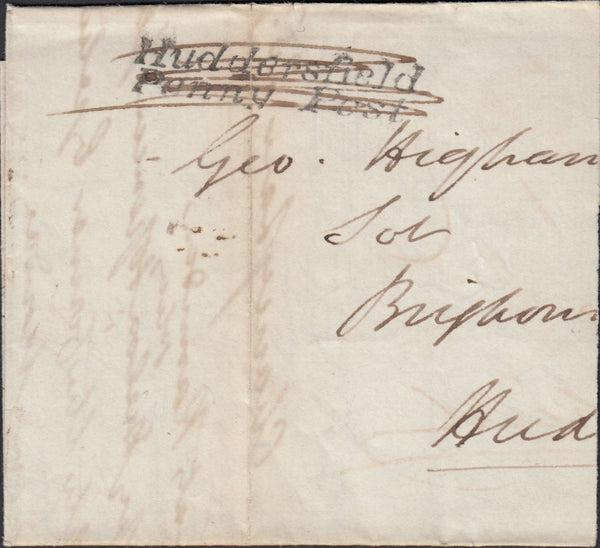 Huddersfield
Penny Post
Geo. Higham
Sol
Brighou
Hud